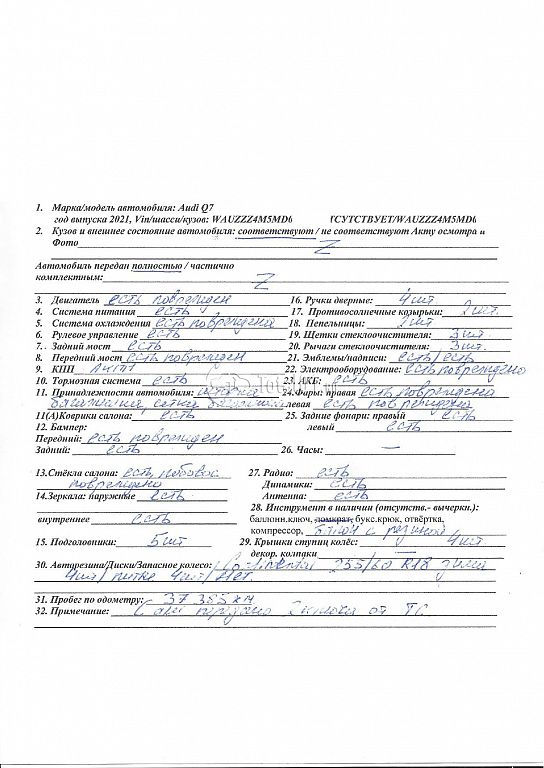 1. Марка/модель автомобиля: Audi Q7
год выпуска 2021, Vin/шасси/кузов: WAUZZZ4M5MD6 ТСУТСТВУЕТ/WAUZZZ4M5MD6
2. Кузов и внешнее состояние автомобиля: соответствуют / не соответствуют Акту осмотра и
Фото Z
Автомобиль передан полностью / частично
комплектным: Z
3. Двигатель есть поврежден 16. Ручки дверные: 4 шт.
4. Система питания есть 17. Противосолнечные козырьки: 2 шт.
5. Система охлаждения есть повреждена 18. Пепельницы: 1 шт
6. Рулевое управление есть 19. Щетки стеклоочистителя: 3 шт.
7. Задний мост есть 20. Рычаги стеклоочистителя: 3 шт.
8. Передний мост есть поврежден 21. Эмблемы/надписи: есть/есть
9. КПП АКПП 22. Электрооборудование: есть повреждено
10. Тормозная система есть 23. АКБ: есть
11. Принадлежности автомобиля: 24.Фары: правая есть повреждена
багажника сетка левая есть повреждена
11(А)Коврики салона: есть 25. Задние фонари: правый есть
12. Бампер: левый есть
Передний: есть поврежден
Задний: есть 26. Часы: —
13.Стёкла салона: есть, лобовое 27. Радио: есть
повреждено Динамики: есть
14.Зеркала: наружные есть Антенна: есть
28. Инструмент в наличии (отсутств.- вычеркн.):
внутреннее есть баллонн.ключ, домкрат, букс.крюк, отвёртка,
компрессор,
15. Подголовники: 5 шт 29. Крынки ступиц колёс: 4 шт
декор. колпаки —
30. Авторезина/Диски/Запасное колесо: Continental 255/60 R18 зима
4 шт/ литые 4 шт/ Нет.
31. Пробег по одометру: 37 355 км
32. Примечание: С а/м передано 2 ключа от ТС